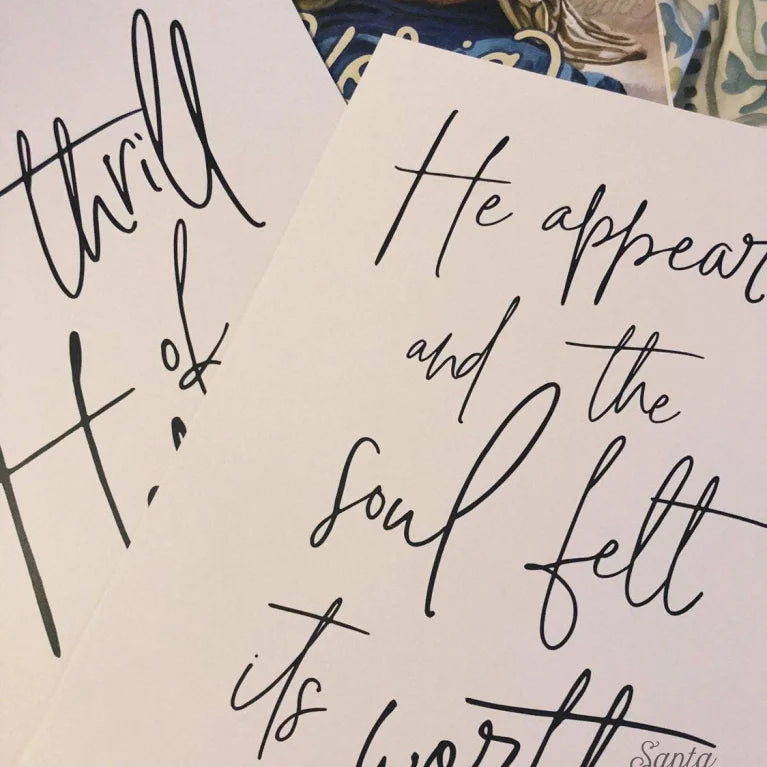 thrill
of
H
He appear
and the
soul felt
its
wort
Santa